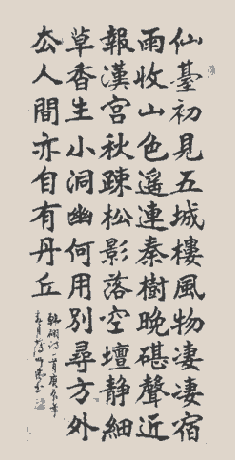 仙臺初見五城樓風物淒淒宿
雨收山色遥連秦樹晚碪聲近
報漢宮秋疎松影落空壇静細
草香生小洞幽何用別尋方外
厺人間亦自有丹丘
韓翃詩一首